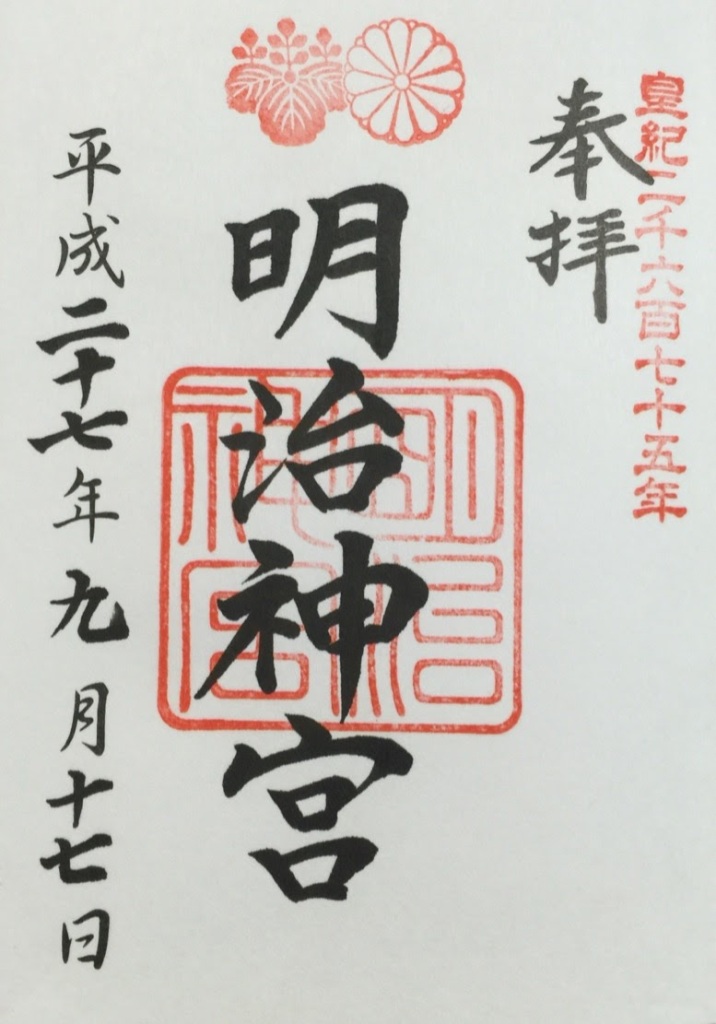 皇紀二千六百七十五年
奉拝
明治神宮
明治神宮
平成二十七年九月十七日